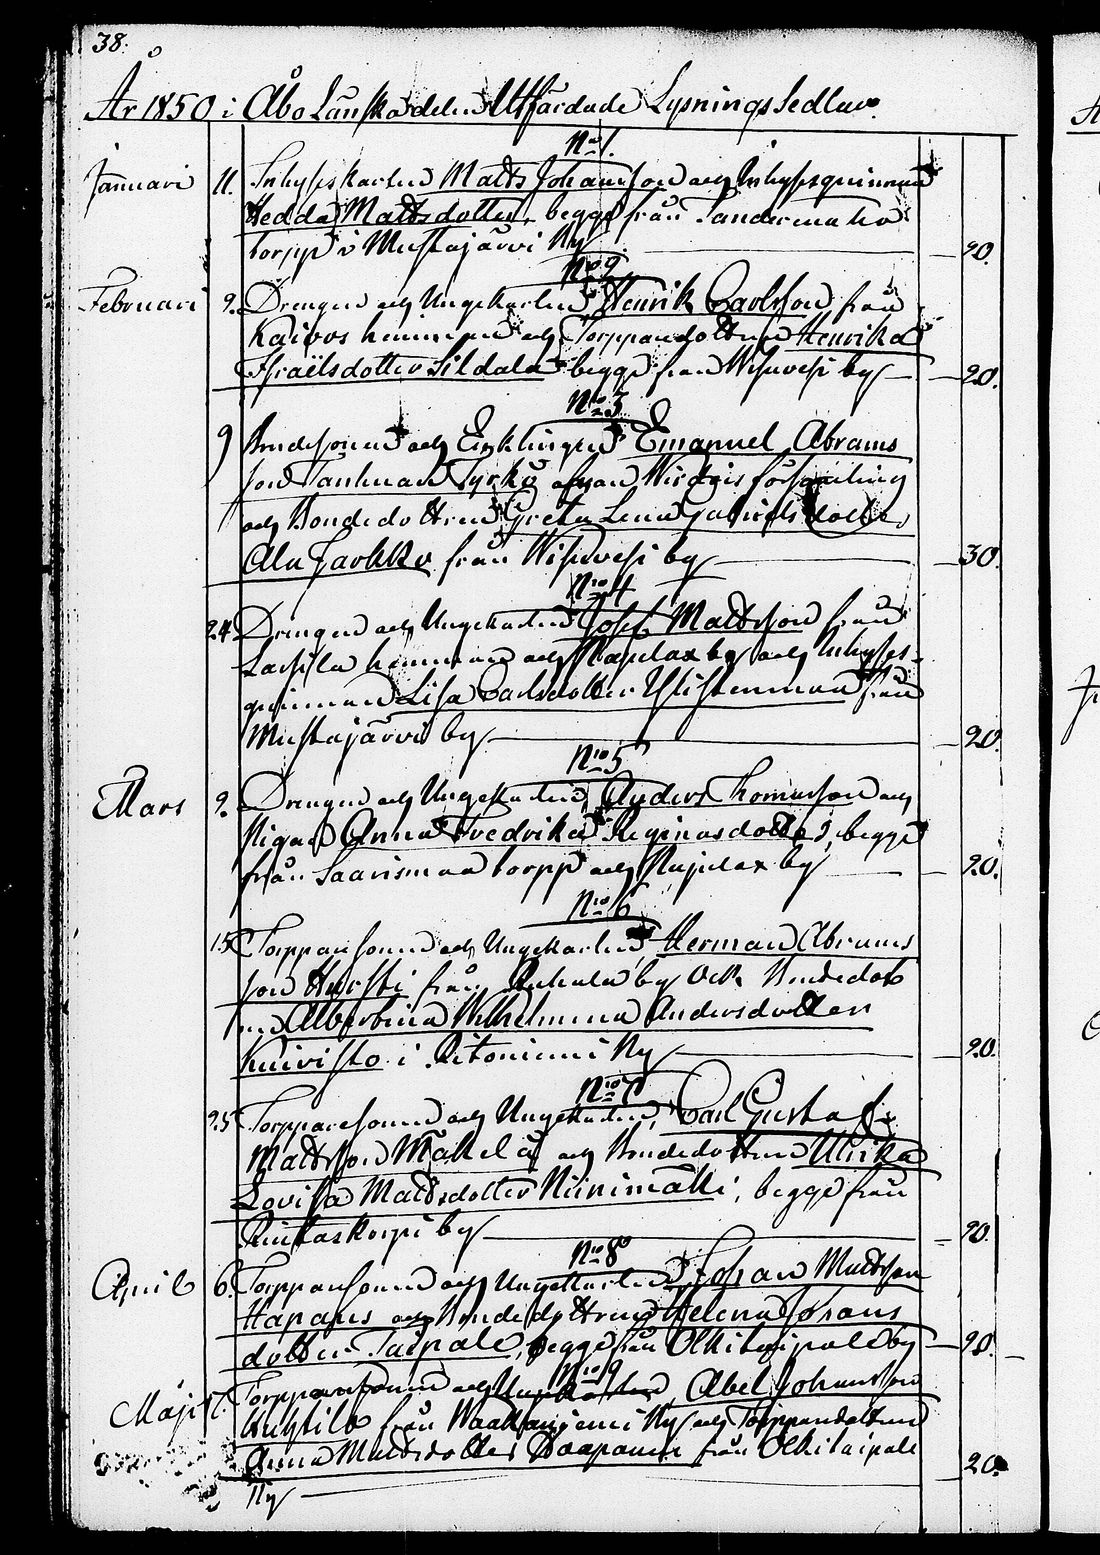 38.
År 1850 i Åbo Länsko delen Utfärdade Lysnings Sedlar.
No 1.
Januari 11. Inhyses karlen Matts Johansson och Inhysesquinnan
Hedda Mattsdotter, begge från Sandermaho
torpp i Mustajärvi By 20.
No 2
Februari 9. Drengen och Ungekarlen Henrik Carlsson från
Kaivos hemman och Torpparedottren Henrika
Israëlsdotter Sildala begge från Wisuvesi by 20.
No 3
9 Bondesonen och Enklingen Emanuel Abrams
son Tanhuan Tyrkö ifrån Wirdois församling
och Bondedottren Greta Lena Gabrielsdotter
Ala Jarkko från Wisuvesi by 30.
No 4
24. Drengen och Ungekarlen Josef Mattsson från
Lassila hemman och Majulax by och Inhyses-
quinnan Lisa Carlsdotter från
Mustajärvi by 20.
No 5
Mars 9. Drengen och Ungekarlen Anders Thomasson och
Pigan Anna Fredrika Reginasdotter, begge
från Saarismaa torpp och Majulax by 20.
No 6
15. Torpparsonen och Ungekarlen Herman Abrams
son Hursti från Ruhala by Och Bondedott
ren Albertina Wilhelmina Andersdotter
Knivisto i Ritoniemi By 20.
No 7
25 Torpparesonen och Ungekarlen, Carl Gustaf
Mattsson Mäkelä och Bondedottren Ulrika
Lovisa Mattsdotter Niinimäki, begge från
Ruhaskorpi by 20.
No 8
April 6. Torpparsonen och Ungekarlen Johan Mattsson
Hapaus och Bondedottren Helena Johans
dotter Taipale, begge från Olkitaipale by 20.
No 9
Maji 7. Torpparsonen och Ungekarlen Abel Johansson
från Waakaniemi By och Torppardottren
Anna Mattsdotter Haapanen från Olkitaipale 20.
By